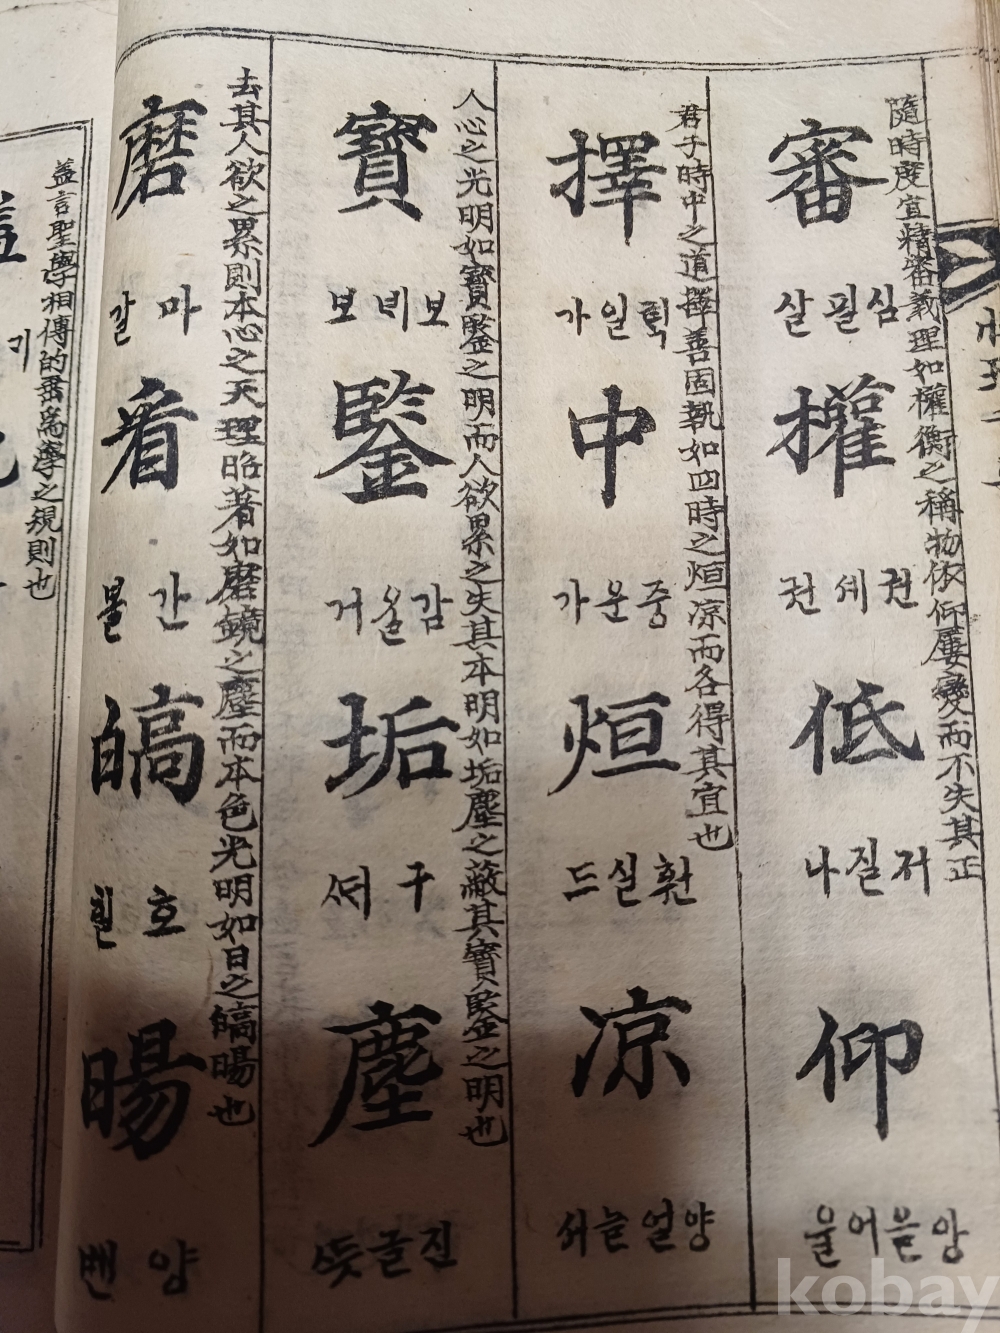 審 權 低 仰
살필심
권세권
나질저
울어를앙
隨時度宜精審義理如權衡之稱物依仰屢變而不失其正
擇 中 烜 凉
가일틱
가운중
드실훤
서늘얼양
君子時中之道擇善固執如四時之烜凉而各得其宜也
寶 鑒 垢 塵
보비보
거울감
구
진
人心之光明如寶鑒之明而人欲累之失其本明如垢塵之蔽其寶鑒之明也
磨 看 皜 暘
갈마
볼간
흴호
볃양
去其人欲之累則本心之天理昭著如磨鏡之塵而本色光明如日之皜暘也
益言聖學相傳的爲學之規則也
기
kobay